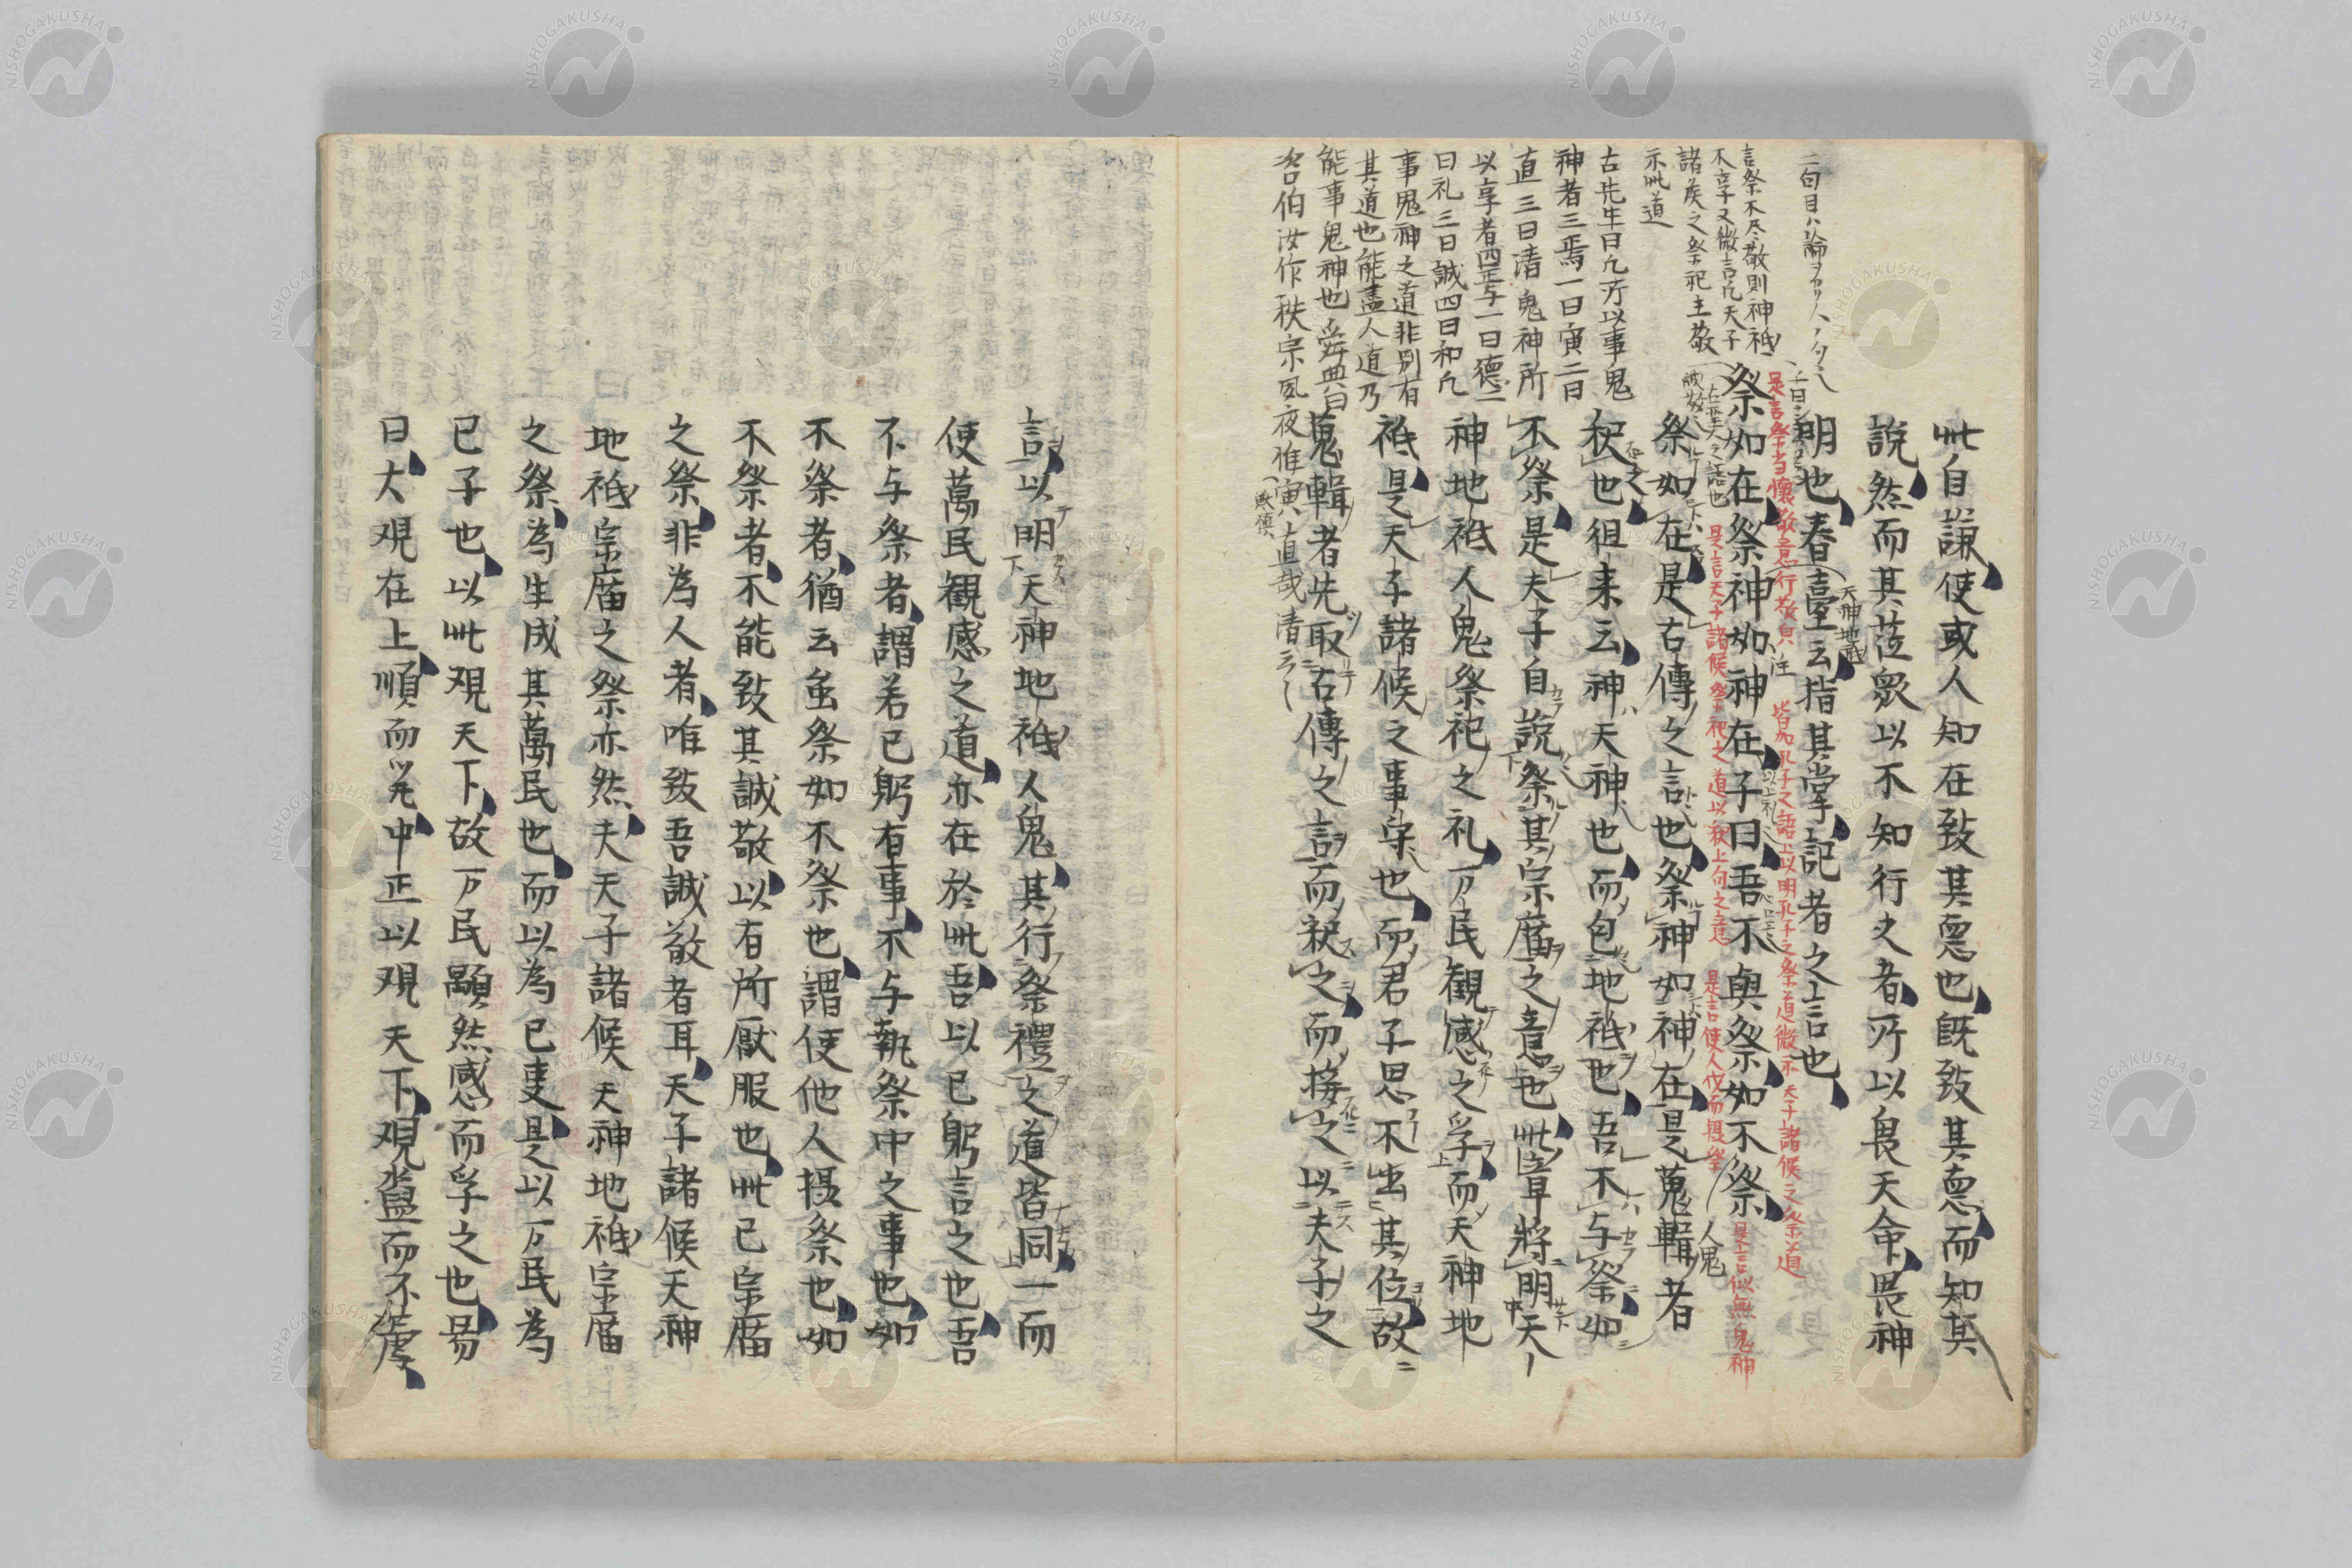 此自謙使或人知在致其悳也既致其悳而知其
說然而其莅衆以不知行之者所以畏天命畏神
明也春臺云指其掌記者之言也
祭如在祭神如神在子曰吾不與祭如不祭
祭如在是古傳之言也祭神如神在是蒐輯者
釈也徂来云神天神也而包地祗也吾不与祭如
不祭是夫子自說祭其宗庿之意也此章將明天
神地祗人鬼祭祀之礼万民觀感之孚而天神地
祗是天子諸侯之事守也而君子思不出其位故
蒐輯者先取古傳之言而釈之而接之以夫子之
二句目ハ論
言祭不尽敬則神祗
不享又微言凡天子
諸侯之祭祀主敬
示此道
古先生曰凡所以事鬼
神者三焉一曰寅二曰
直三曰清鬼神所
以享者四焉一曰德二
曰礼三曰誠四曰和凡
事鬼神之道非別有
其道也能盡人道乃
能事鬼神也舜典曰
咨伯汝作秩宗夙夜惟寅直哉清
是言祭当懐敬意行敬
皆為孔子之語上以明孔子之祭道微示天子諸侯之祭道
是言天子諸侯祭祀之道以釈上句之意
是言使人代而摂祭
是言似無鬼神
天神地祗
人鬼
言以明天神地祗人鬼其行祭禮之道皆同一而
使萬民觀感之道亦在於此吾以已躬言之也吾
不与祭者謂若已躬有事不与執祭中之事也如
不祭者猶云虽祭如不祭也謂使他人摂祭也如
不祭者不能致其誠敬以有所厭服也此已宗庿
之祭非為人者唯致吾誠敬者耳天子諸侯天神
地祗宗庿之祭亦然夫天子諸侯天神地祗宗庿
之祭為生成其萬民也而以為已事是以万民為
已子也以此观天下故万民顒然感而孚之也易
曰大观在上順而巽中正以观天下观盥而不薦